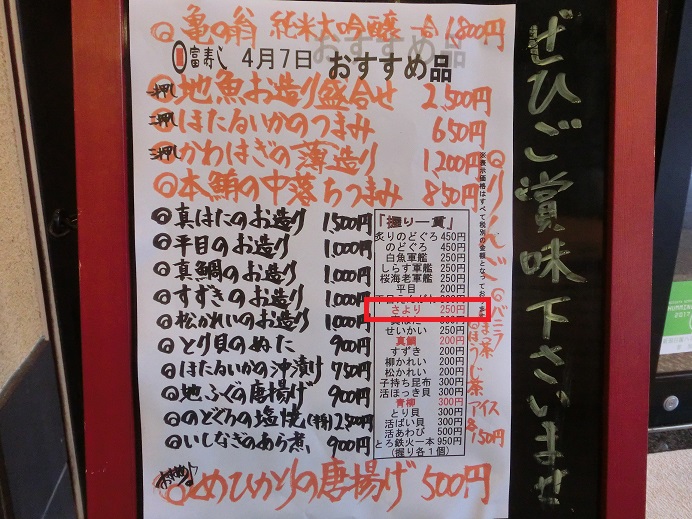 亀の翁 純米大吟醸 一合 1,800円
富寿し 4月7日 おすすめ品
一押し ◎地魚お造り盛合せ 2,500円
二押し ◎ほたるいかのつまみ 650円
三押し ◎かわはぎの薄造り 1,200円
◎本鮪の中落ちつまみ 850円
◎真はたのお造り 1,500円
◎平目のお造り 1,000円
◎真鯛のお造り 1,000円
◎すずきのお造り 1,000円
◎松かれいのお造り 1,000円
◎とり貝のぬた 900円
◎ほたるいかの沖漬け 750円
◎地ふぐの唐揚げ 900円
◎のどぐろの塩焼(半身)2,500円
◎いしなぎのあら煮 900円
「握り一貫」
炙りのどぐろ 450円
のどぐろ 450円
白魚軍艦 250円
しらす軍艦 250円
桜海老軍艦 250円
平目 200円
さより 250円
真はた 300円
せいかい 200円
真鯛 200円
すずき 200円
柳かれい 200円
松かれい 200円
子持ち昆布 300円
活ほっき貝 300円
青柳 300円
とり貝 300円
活ばい貝 300円
活あわび 500円
とろ鉄火一本 950円
(握り各1個)
※表示価格はすべて税別の金額となっております
◎バニラ
◎まっ茶
◎ほうじ茶
アイス
各150円
おすすめ♪
◎めひかりの唐揚げ 500円
ぜひご賞味下さいませ